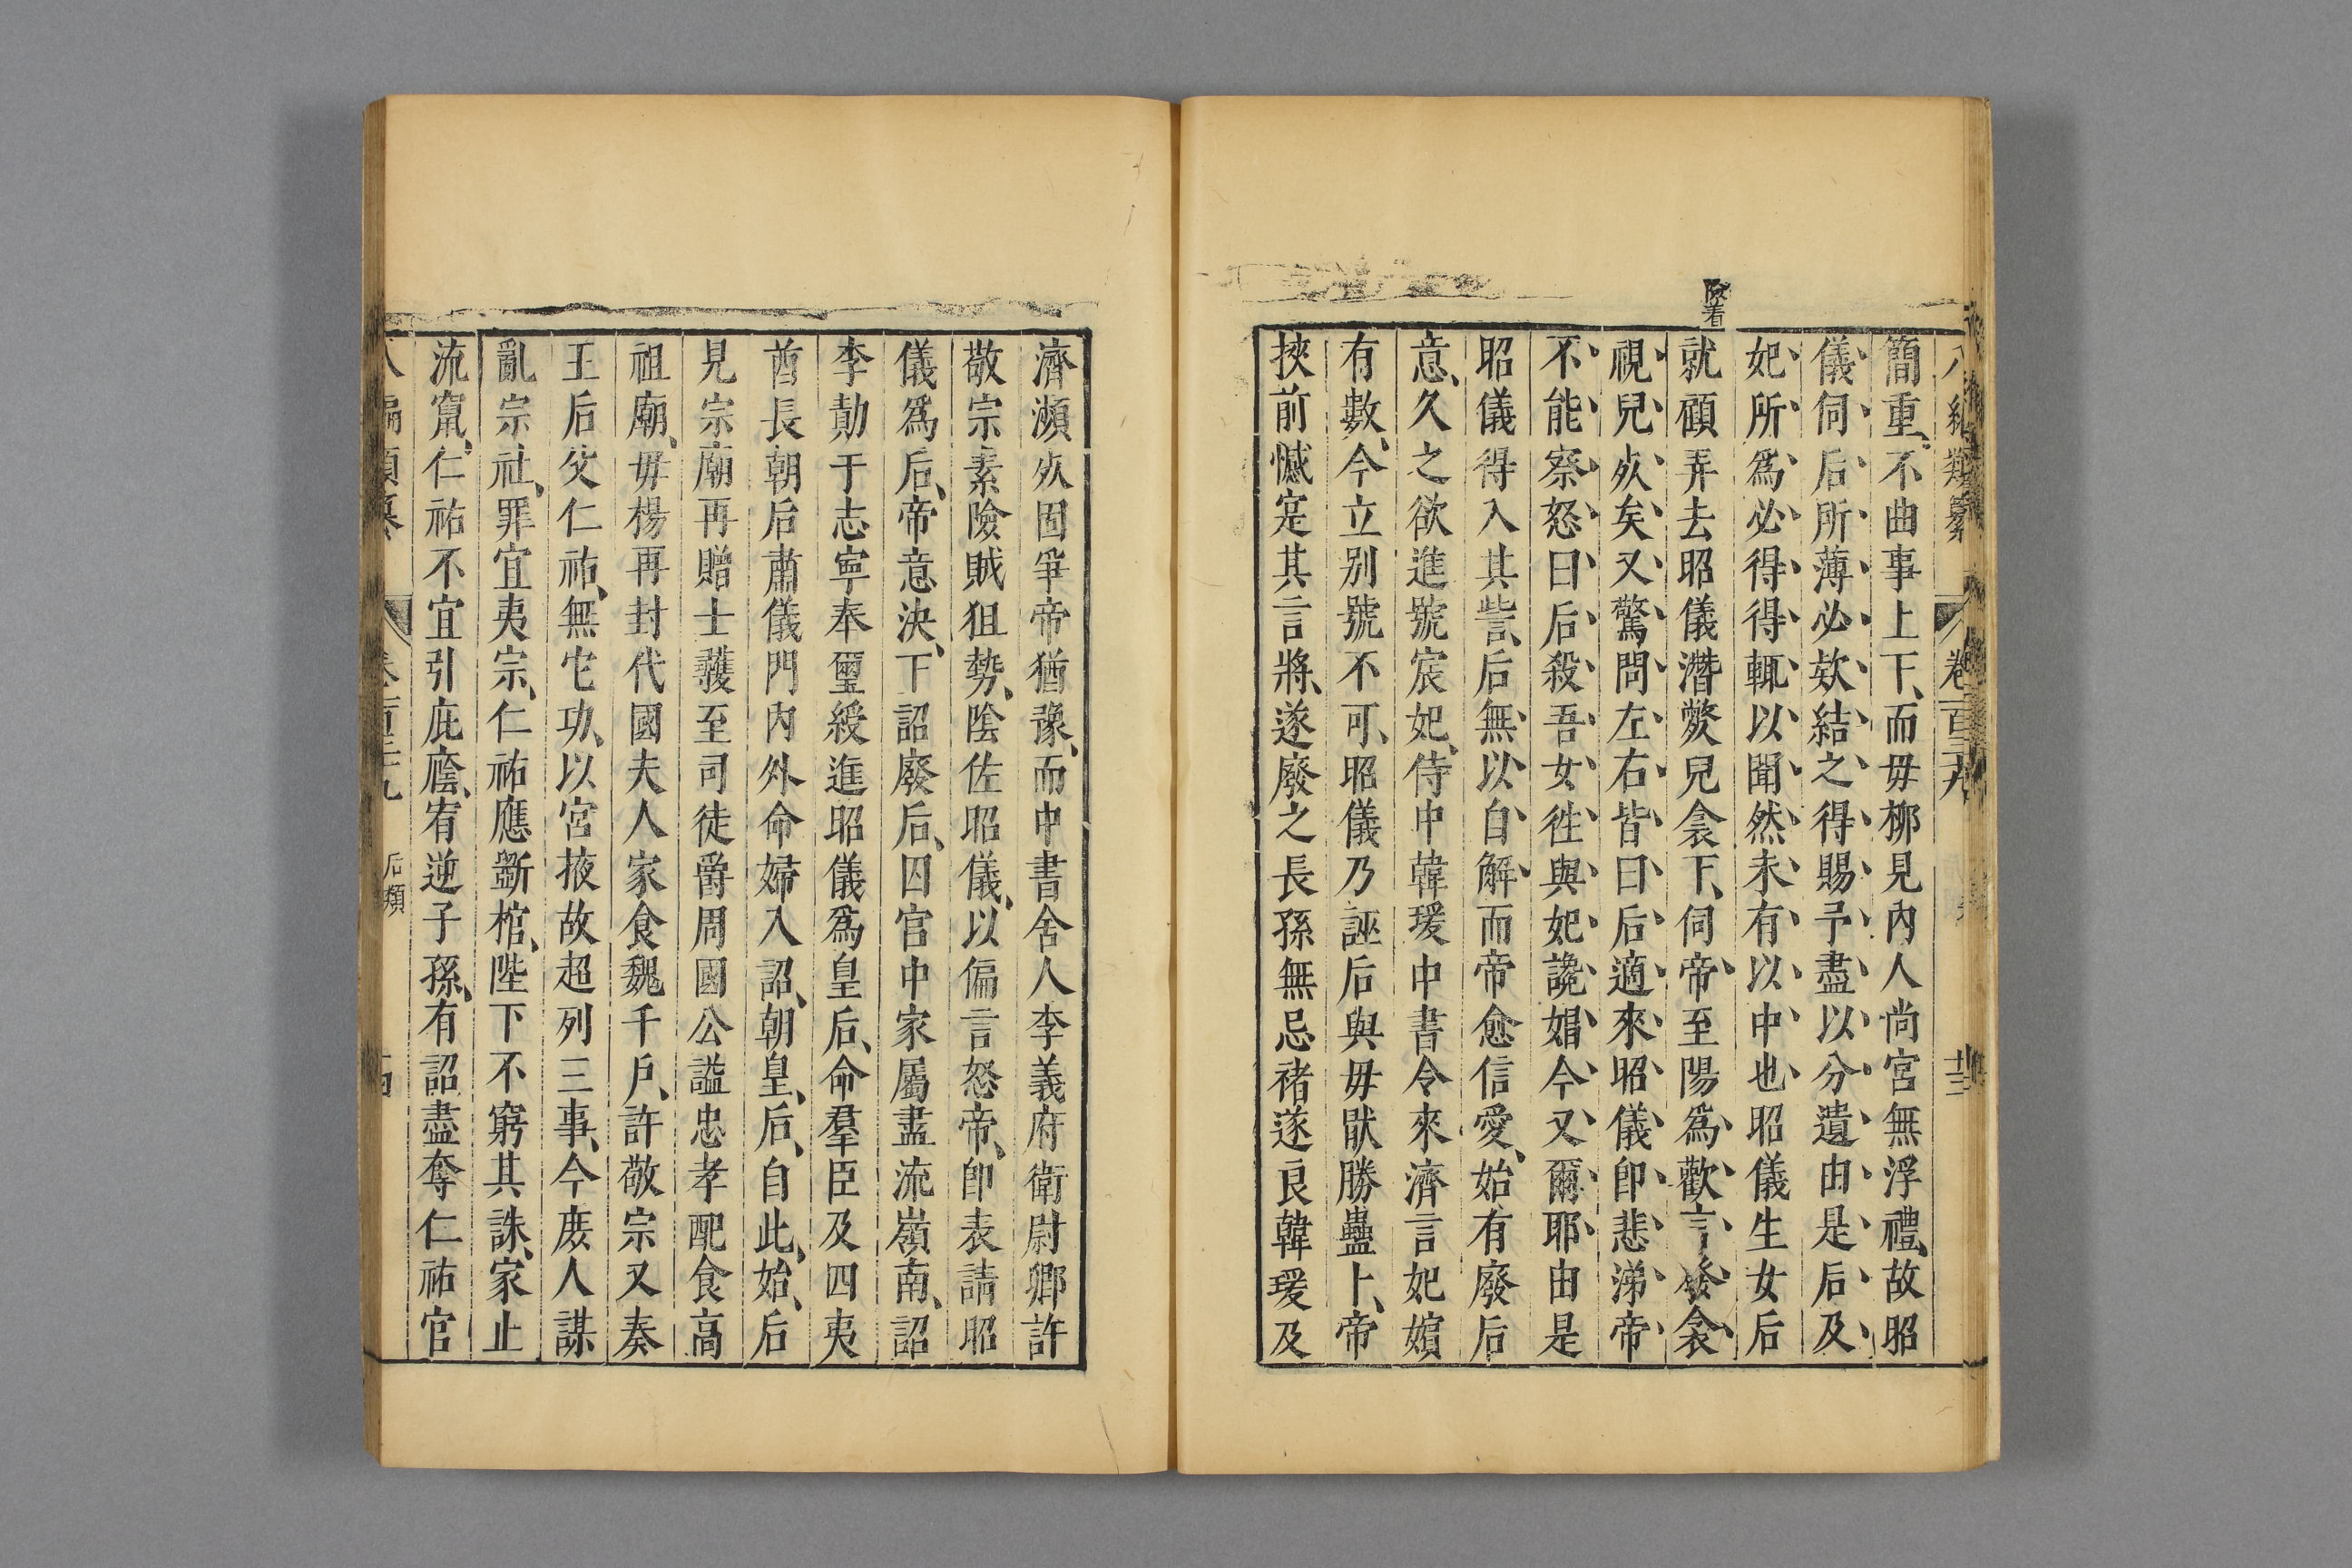 險着
簡重不曲事上下而毋栁見內人尚宮無浮禮故昭
儀伺后所薄必欵結之得賜予盡以分遺由是后及
妃所爲必得得輒以聞然未有以中也昭儀生女后
就顧弄去昭儀潛斃兒衾下伺帝至陽爲歡言發衾
視兒㱔矣又驚問左右皆曰后適來昭儀卽悲涕帝
不能察怒曰后殺吾女徃與妃讒媢今又爾耶由是
昭儀得入其訾后無以自解而帝愈信愛始有廢后
意久之欲進號宸妃侍中韓瑗中書令來濟言妃嬪
有數今立别號不可昭儀乃誣后與毋猒勝蠱上帝
挾前憾寔其言將遂廢之長孫無忌褚遂良韓瑗及
濟瀕㱔固爭帝猶豫而中書舍人李義府衛尉卿許
敬宗素險賊狙勢陰佐昭儀以偏言怒帝卽表請昭
儀爲后帝意決下詔廢后因官中家屬盡流嶺南詔
李勣于志寧奉璽綬進昭儀爲皇后命羣臣及四夷
酋長朝后肅儀門內外命婦入詔朝皇后自此始后
見宗廟再贈士彠至司徒爵周國公謚忠孝配食高
祖廟毋楊再封代國夫人家食魏千戶許敬宗又奏
王后父仁祐無它功以宮掖故超列三事今庶人謀
亂宗社罪宜夷宗仁祐應斵棺陛下不窮其誅家止
流竄仁祐不宜引庇廕宥逆子孫有詔盡奪仁祐官
后類